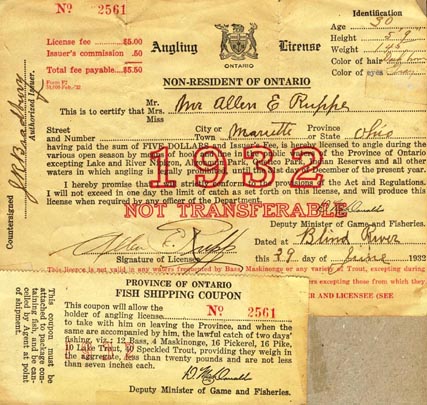 No 2561
Identification
Age 30
Height 5.9
Weight 145
Color of hair
Color of eyes
License fee $5.00
Issuer's commission .50
Total fee payable $5.50
Angling License
ONTARIO
NON-RESIDENT OF ONTARIO
Mr.
This is to certify that Mrs. Mr Allen E Ruppe
Miss
Street City or Province
and Number Town Marietta or State Ohio
having paid the sum of FIVE DOLLARS and Issuer's Fee, is hereby licensed to angle during the
various open season by means of hook and line in the public waters of the Province of Ontario
excepting Lake and River Nipigon, Algonquin Park, Quetico Park, Indian Reserves and all other
waters in which angling is legally prohibited until the 31st day of December of the present year.
1932
I hereby promise that the strict conformance with the provisions of the Act and Regulations.
I will not exceed in one day the limit of catch as set forth on this license, and will produce this
license when required by any officer of the Department.
NOT TRANSFERABLE
D. McDonald
Deputy Minister of Game and Fisheries.
Allen E. Rupp
Signature of Licensee
Dated at Blind River
this 29 of June 1932
This licence is not valid in any waters frequented by Bass, Maskinonge or any variety of Trout, excepting during
excepting those from which they
AND LICENSEE (SEE
Countersigned
Authorized Issuer.
PROVINCE OF ONTARIO
FISH SHIPPING COUPON
This coupon will allow the
holder of angling license No 2561
to take with him on leaving the Province, and when the
same are accompanied by him, the lawful catch of two days'
fishing, viz.: 12 Bass, 4 Maskinonge, 16 Pickerel, 16 Pike,
10 Lake Trout, 60 Speckled Trout, providing they weigh in
the aggregate, less than twenty pounds and are not less
than seven inches each.
D. McDonald
Deputy Minister of Game and Fisheries.
This coupon must be
attached to package con-
taining fish, and be can-
celled by Agent at point
of shipment.